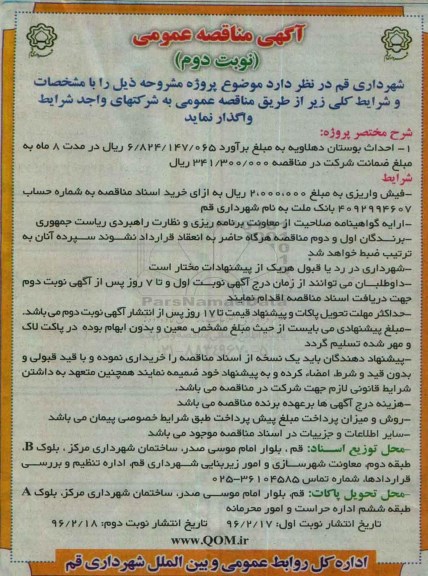 آگهی مناقصه عمومی
(نوبت دوم)
شهرداری قم در نظر دارد موضوع پروژه مشروحه ذیل را با مشخصات
و شرایط کلی زیر از طریق مناقصه عمومی به شرکتهای واجد شرایط
واگذار نماید
شرح مختصر پروژه:
۱- احداث بوستان دهلاویه به مبلغ برآورد ۶/۸۲۴/۱۴۷/۰۶۵ ریال در مدت ۸ ماه به
مبلغ ضمانت شرکت در مناقصه ۳۴۱/۳۰۰/۰۰۰ ریال
شرایط
-فیش واریزی به مبلغ ۲،۰۰۰،۰۰۰ ریال به ازای خرید اسناد مناقصه به شماره حساب
۴۰۹۲۹۹۴۶۰۷ بانک ملت به نام شهرداری قم
-ارایه گواهینامه صلاحیت از معاونت برنامه ریزی و نظارت راهبردی ریاست جمهوری
-برندگان اول و دوم مناقصه هرگاه حاضر به انعقاد قرارداد نشوند سپرده آنان به
ترتیب ضبط خواهد شد
-شهرداری در رد یا قبول هریک از پیشنهادات مختار است
-داوطلبان می توانند از زمان درج آگهی نوبت اول و تا ۷ روز پس از آگهی نوبت دوم
جهت دریافت اسناد مناقصه اقدام نمایند
-حداکثر مهلت تحویل پاکات و پیشنهاد قیمت تا ۱۷ روز پس از انتشار آگهی نوبت دوم می باشد.
-مبلغ پیشنهادی می بایست از حیث مبلغ مشخص، معین و بدون ابهام بوده در پاکت لاک
و مهر شده تسلیم گردد
-پیشنهاد دهندگان باید یک نسخه از اسناد مناقصه را خریداری نموده و با قید قبولی و
بدون قید و شرط، امضاء کرده و به پیشنهاد خود ضمیمه نمایند همچنین متعهد به داشتن
شرایط قانونی لازم جهت شرکت در مناقصه می باشد.
-هزینه درج آگهی ها برعهده برنده مناقصه می باشد
-روش و میزان پرداخت مبلغ پیش پرداخت طبق شرایط خصوصی پیمان می باشد
-سایر اطلاعات و جزییات در اسناد مناقصه موجود می باشد
-محل توزیع اسناد: قم ، بلوار امام موسی صدر، ساختمان شهرداری مرکز ، بلوک B،
طبقه دوم، معاونت شهرسازی و امور زیربنایی شهرداری قم، اداره تنظیم و بررسی
قراردادها، شماره تماس ۳۶۱۰۴۵۸۵-۰۲۵
-محل تحویل پاکات: قم، بلوار امام موسی صدر، ساختمان شهرداری مرکز، بلوک A
طبقه ششم اداره حراست و امور محرمانه
تاریخ انتشار نوبت اول: ۹۶/۲/۱۷ تاریخ انتشار نوبت دوم: ۹۶/۲/۱۸
www.QOM.ir
اداره کل روابط عمومی و بین الملل شهرداری قم